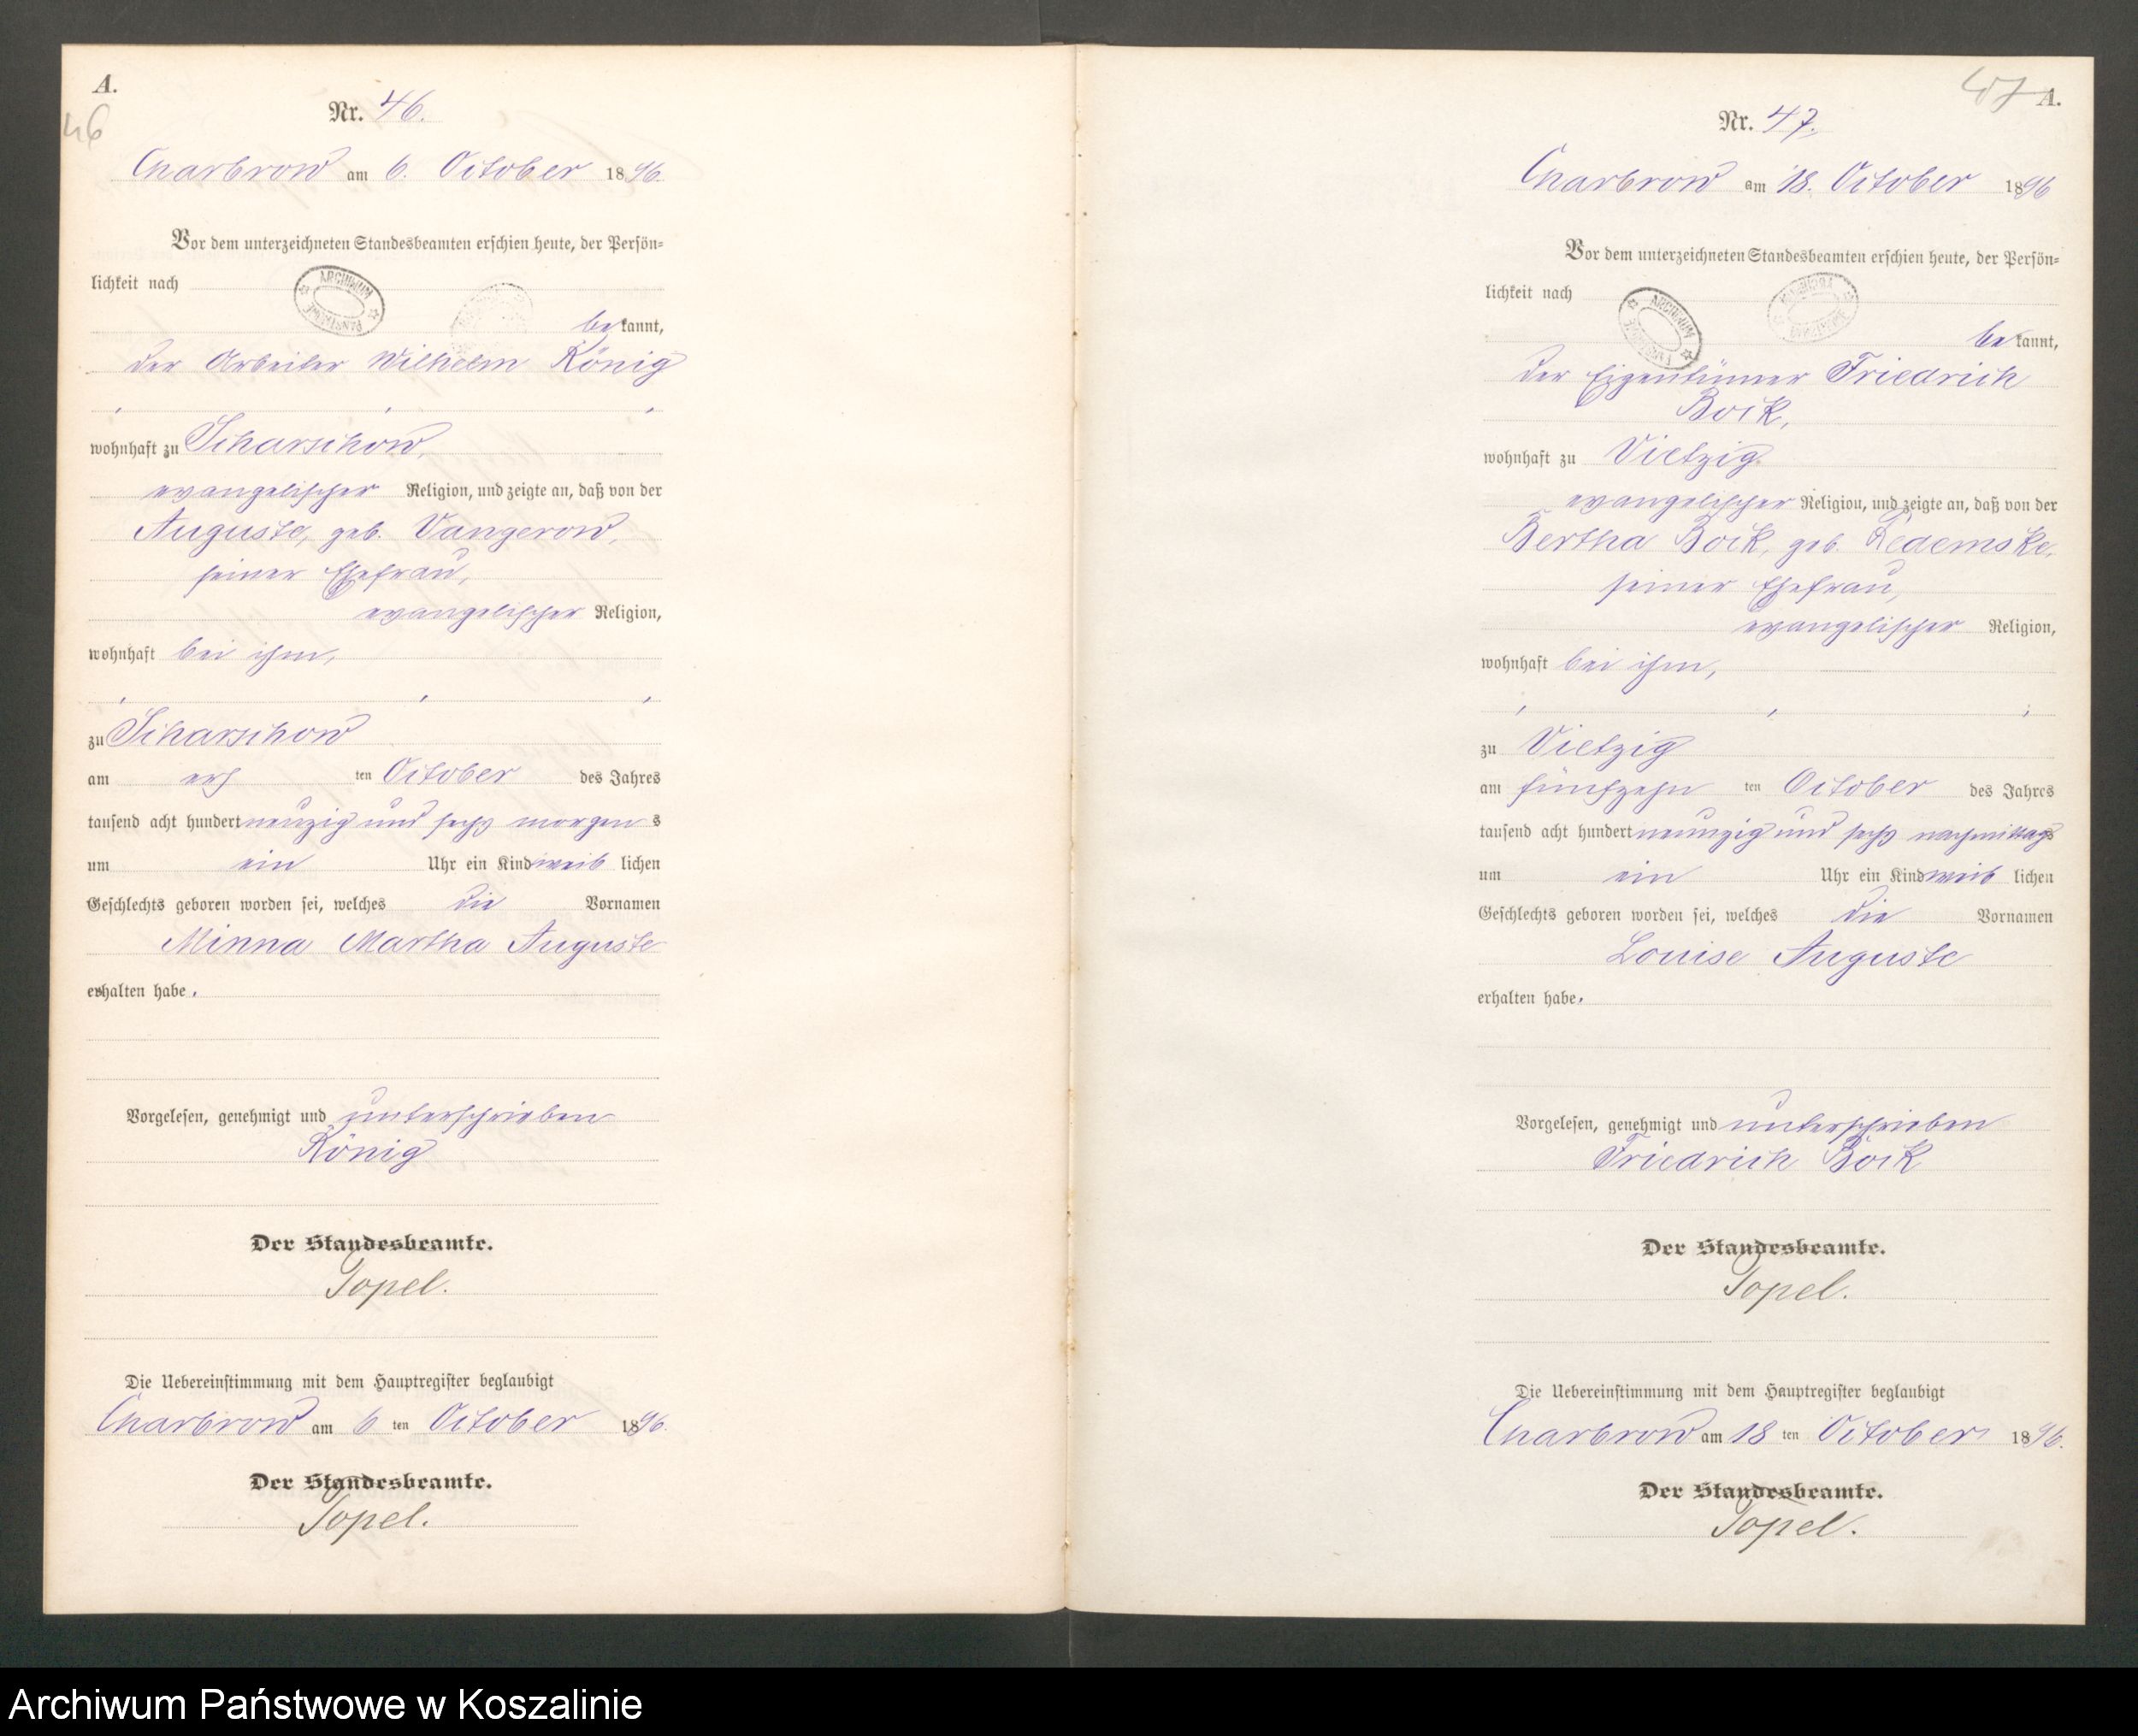 A.
46
Nr. 46.
Charbrow am 6. October 1896.
Vor dem unterzeichneten Standesbeamten erschien heute, der Persön=
lichkeit nach
ARCHIWUM PAŃSTWOWE
bekannt,
der Arbeiter Wilhelm König
wohnhaft zu Scharschow,
evangelischer Religion, und zeigte an, daß von der
Auguste, geb. Vangerow,
seiner Ehefrau,
evangelischer Religion,
wohnhaft bei ihm,
zu Scharschow
am ersten October des Jahres
tausend acht hundert neunzig und sechs morgens
um ein Uhr ein Kind weiblichen
Geschlechts geboren worden sei, welches die Vornamen
Minna Martha Auguste
erhalten habe.
Vorgelesen, genehmigt und unterschrieben
König
Der Standesbeamte.
Topel.
Die Uebereinstimmung mit dem Hauptregister beglaubigt
Charbrow am 6ten October 1896.
Der Standesbeamte.
Topel.
47 A.
Nr. 47.
Charbrow am 18. October 1896
Vor dem unterzeichneten Standesbeamten erschien heute, der Persön=
lichkeit nach
ARCHIWUM PAŃSTWOWE
bekannt,
der Eigentümer Friedrich
Bock,
wohnhaft zu Vietzig.
evangelischer Religion, und zeigte an, daß von der
Bertha Bock, geb. Redemske,
seiner Ehefrau,
evangelischer Religion,
wohnhaft bei ihm,
zu Vietzig
am fünfzehnten October des Jahres
tausend acht hundert neunzig und sechs nachmittags
um ein Uhr ein Kind weiblichen
Geschlechts geboren worden sei, welches die Vornamen
Louise Auguste
erhalten habe.
Vorgelesen, genehmigt und unterschrieben
Friedrich Bock
Der Standesbeamte.
Topel.
Die Uebereinstimmung mit dem Hauptregister beglaubigt
Charbrow am 18ten October 1896.
Der Standesbeamte.
Topel.
Archiwum Państwowe w Koszalinie